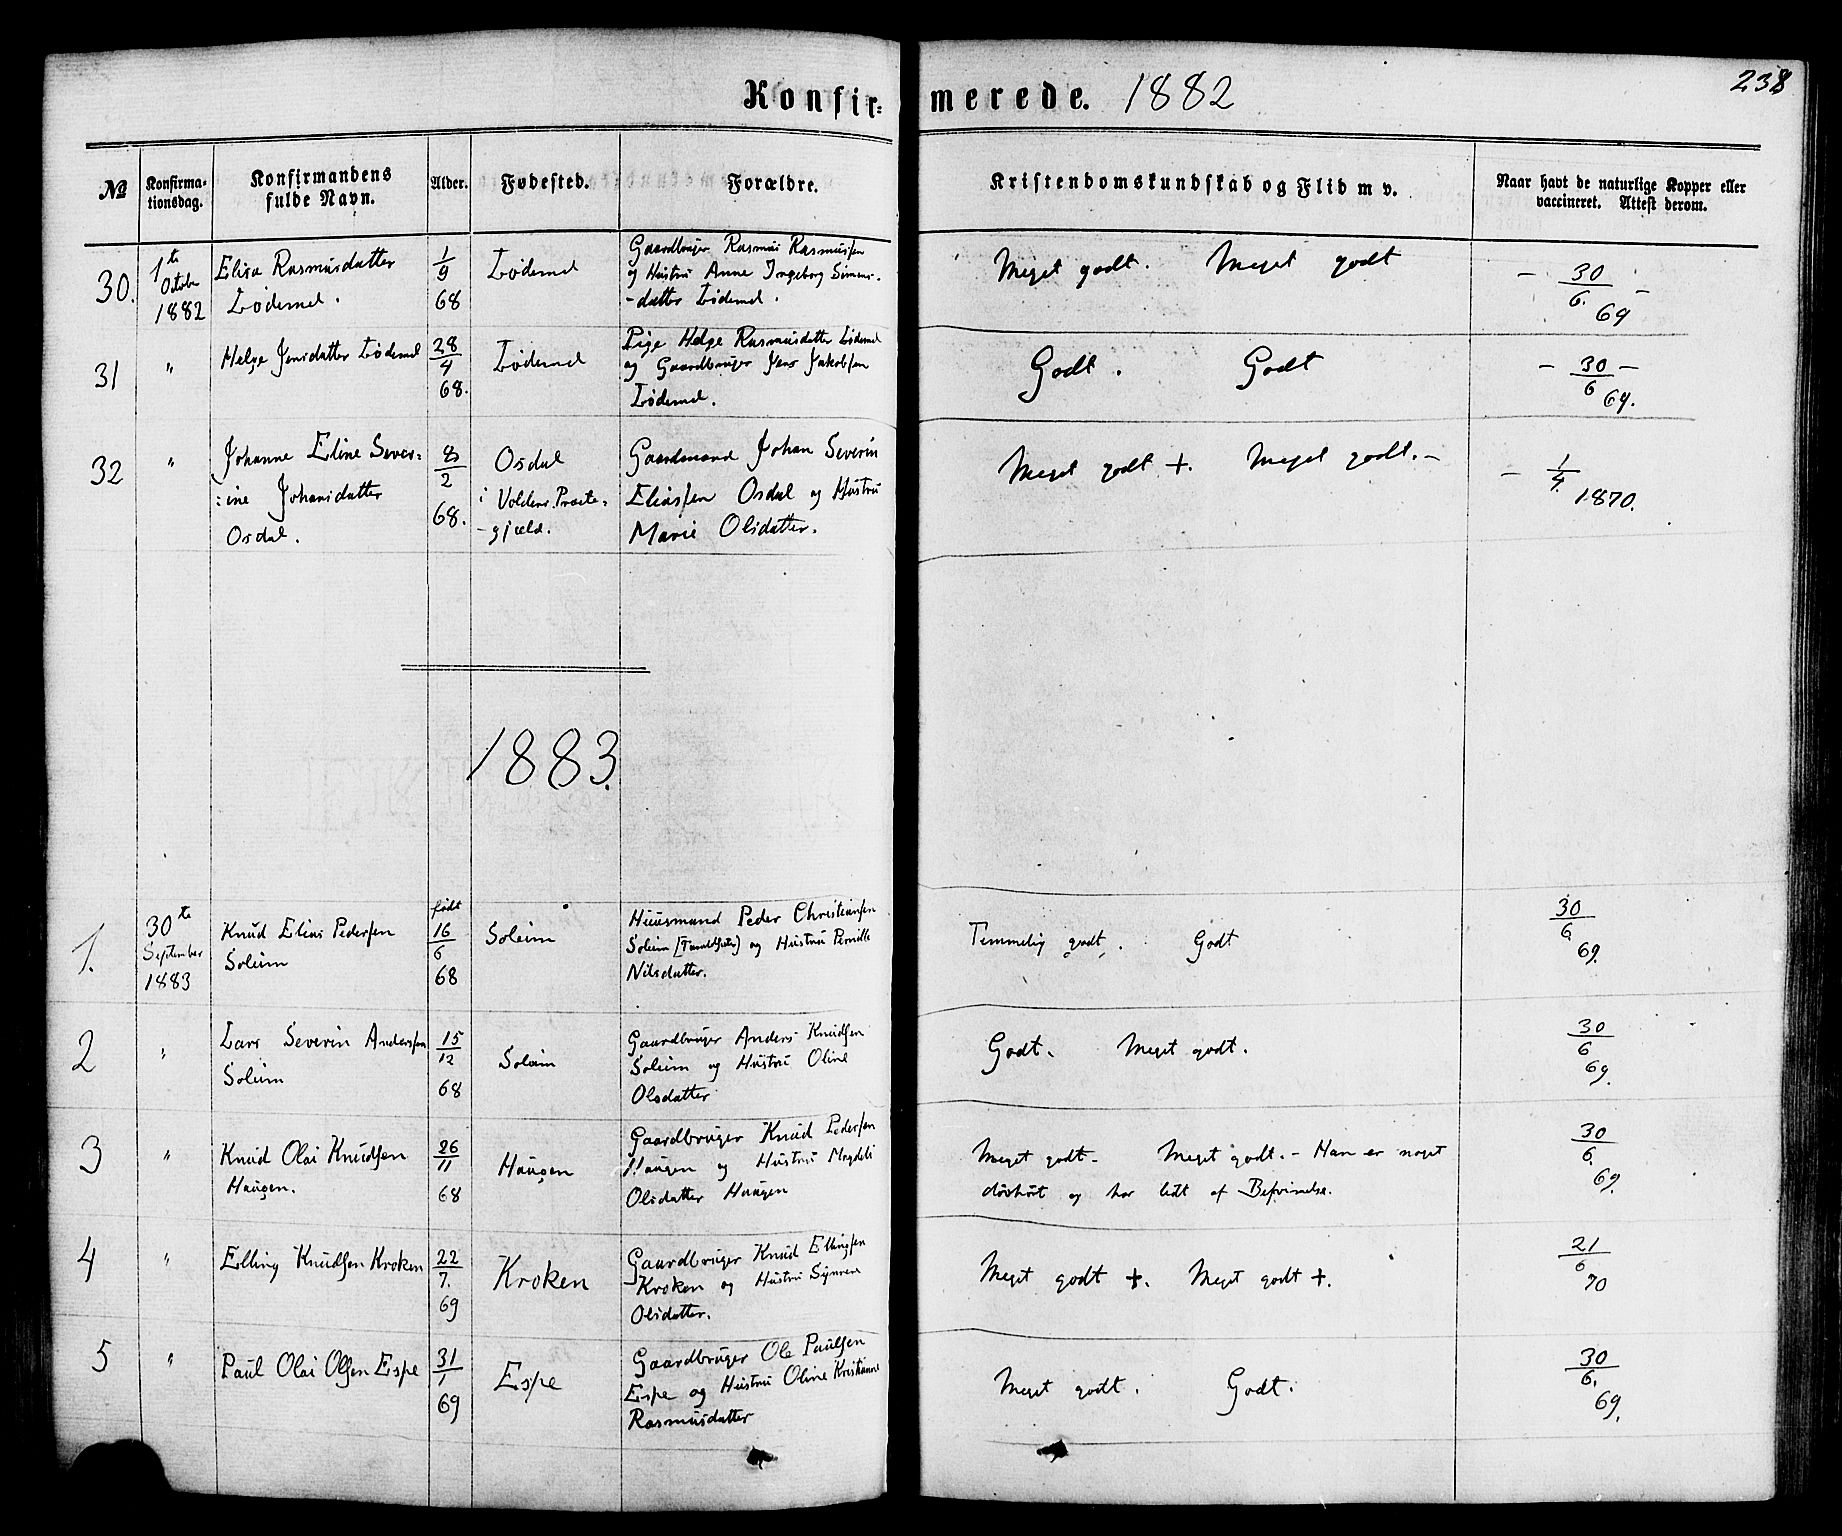 Konfir=merede. 1882
238
№
Konfirma-
tionsdag.
Konfirmandens
fulde Navn.
Alder.
Fødested.
Forældre.
Kristendomskundskab og Flid m v.
Naar havt de naturlige Kopper eller
vaccineret. Attest derom.
30.
1te
October
1882
Elisa Rasmusdatter
Lødemel.
1/9
68
Lødemel
Gaardbruger Rasmus Rasmussen
og Hustru Anne Ingeborg Simons-
-datter Lødemel.
Meget godt. Meget godt
- 30/6 69 -
31
"
Helge Jensdatter Lødemel
28/4
68.
Lødemel
Pige Helge Rasmusdatter Lødemel
og Gaardbruger Jens Jakobsen
Lødemel.
Godt. Godt
- 30/6 69. -
32
"
Johanne Eline Sever=
=ine Johansdatter
Osdal.
8/2
68.
Osdal
i Voldens Præste=
-gjeld.
Gaardmand Johan Severin
Eliassen Osdal og Hustru
Marie Olsdatter.
Meget godt +. Meget godt. -
- 1/4 1870.
1883.
1.
30te
September
1883
Knud Elias Pedersen
Soleim
født
16/6
68
Soleim
Huusmand Peder Christiansen
Soleim og Hustru Pernille
Nilsdatter.
Temmelig godt. Godt
30/6 69.
2
"
Lars Severin Anderssen
Soleim
15/12
68
Soleim
Gaardbruger Anders Knudsen
Soleim og Hustru Oline
Olsdatter
Godt. Meget godt.
30/6 69.
3
"
Knud Olai Knudsen
Haugen.
26/11
68
Haugen
Gaardbruger Knud Pedersen
Haugen og Hustru Magdeli
Olsdatter Haugen
Meget godt - Meget godt. - Han er noget
døvhørt og har lidt af Besvimelse.
30/6 69.
4
"
Elling Knudsen Kroken
22/7.
69
Kroken
Gaardbruger Knud Ellingsen
Kroken og Hustru Synneve
Olsdatter.
Meget godt +. Meget godt +.
21/6 70
5
"
Paul Olai Olsen Espe
31/1
69
Espe
Gaardbruger Ole Paulsen
Espe og Hustru Oline Kristianne
Rasmusdatter
Meget godt. Godt.
30/6. 69.